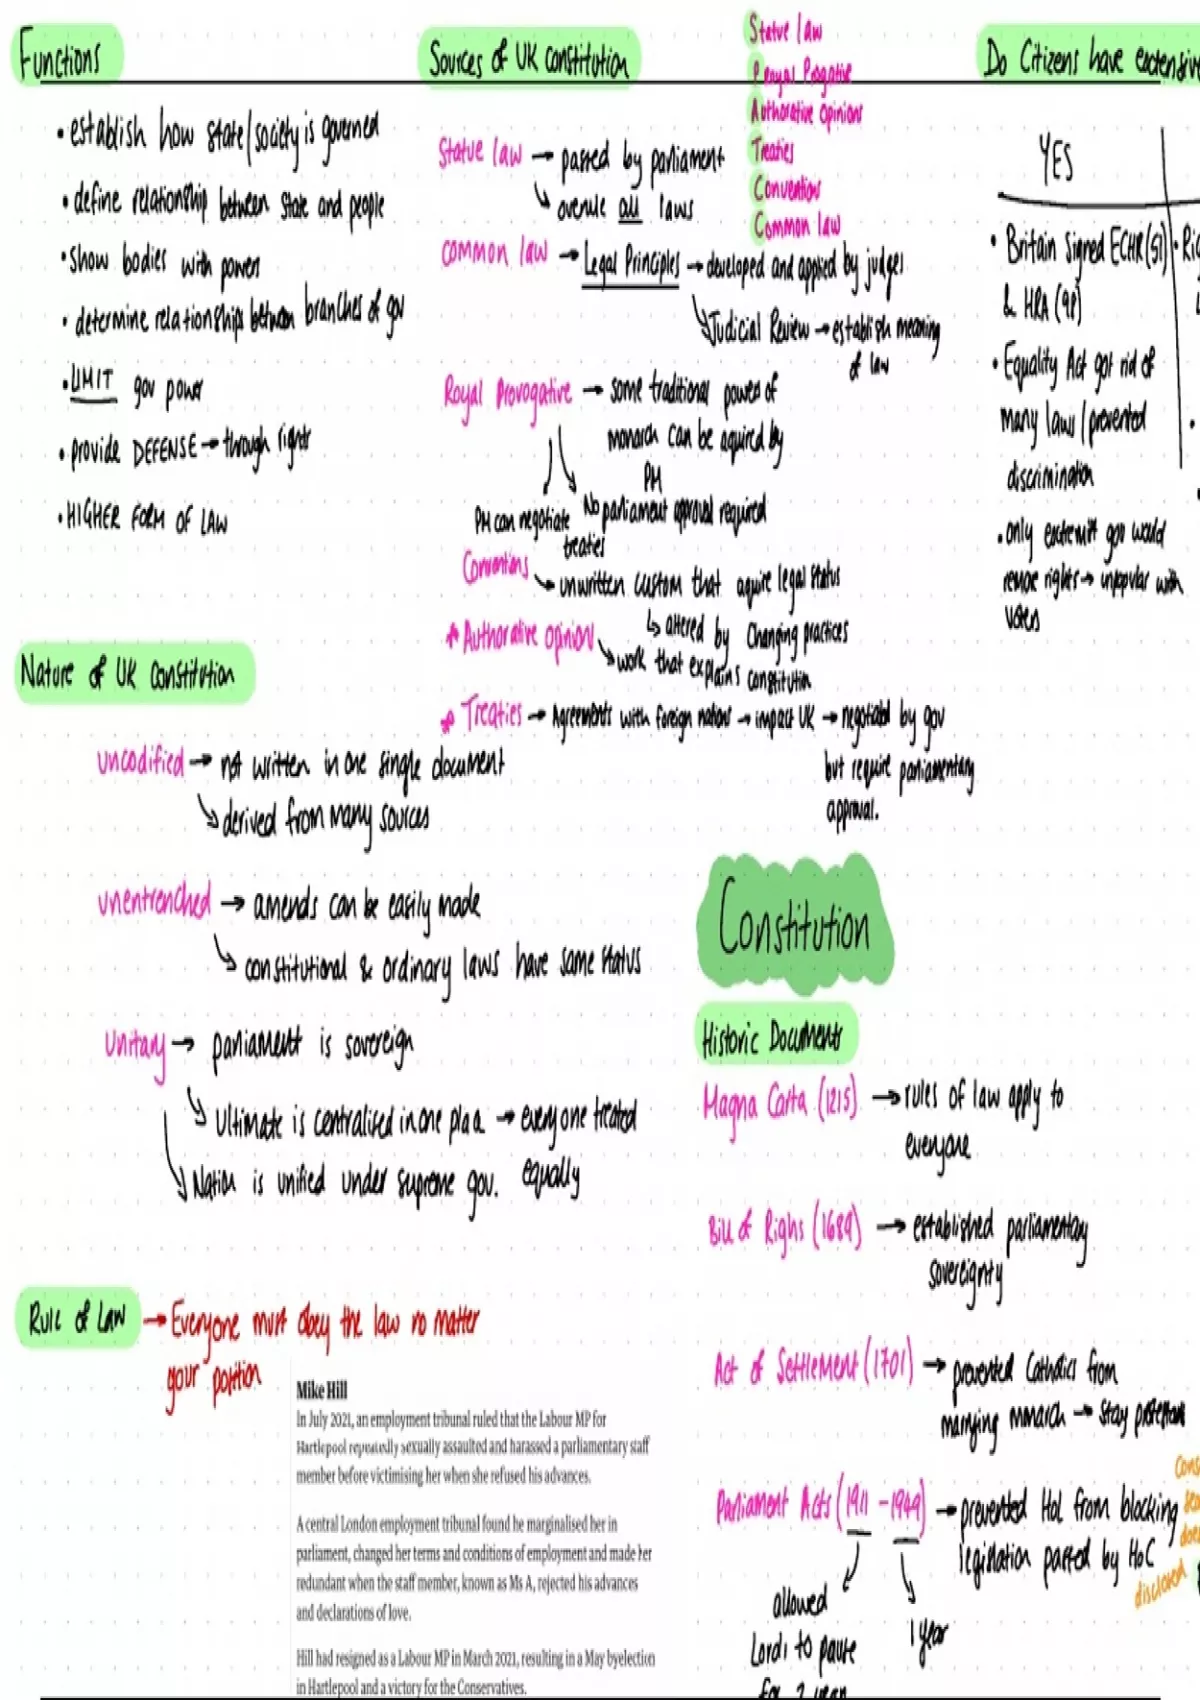 Functions
• establish how state/society is governed
• define relationship between state and people
• show bodies with powers
• determine relationships between branches of gov
• LIMIT gov power
• provide DEFENSE → through rights
• HIGHER FORM OF LAW
Nature of UK constitution
uncodified → not written in one single document
↳ derived from many sources
unentrenched → amends can be easily made
↳ constitutional & ordinary laws have same status
Unitary → parliament is sovereign
↳ Ultimate is centralised in one place → everyone treated
equally
↳ Nation is unified under supreme gov.
Rule of Law → Everyone must obey the law no matter
your position
Mike Hill
In July 2021, an employment tribunal ruled that the Labour MP for
Hartlepool repeatedly sexually assaulted and harassed a parliamentary staff
member before victimising her when she refused his advances.
A central London employment tribunal found he marginalised her in
parliament, changed her terms and conditions of employment and made her
redundant when the staff member, known as Ms A, rejected his advances
and declarations of love.
Hill had resigned as a Labour MP in March 2021, resulting in a May byelection
in Hartlepool and a victory for the Conservatives.
Sources of UK constitution
Statue law
Royal Progative
Authorative opinions
Treaties
Conventions
Common law
Statue law → passed by parliament
↳ overule all laws
common law → Legal Principles → developed and applied by judges
↳ Judicial Review → establish meaning
of law
Royal Provogative → some traditional powers of
monarch can be aquired by
PM
PM can negotiate
treaties
No parliament approval required
Conventions
↳ unwritten custom that aquire legal status
↳ altered by changing practices
* Authorative opinions
↳ work that explains constitution
* Treaties → Agreements with foreign nations → impact UK → negotiated by gov
but require parliamentary
approval.
Constitution
Historic Documents
Magna Carta (1215) → rules of law apply to
everyone
Bill of Righs (1689) → established parliamentary
sovereignty
Act of Settlement (1701) → prevented Catholics from
marrying monarch → stay protestant
Parliament Acts (1911 - 1949) → prevented HoL from blocking
legislation passed by HoC
allowed
Lords to pause
for 2 year
1 year
disclosed
Do Citizens have extensive
YES
• Britain signed ECHR (51)
& HRA (98)
• Equality Act got rid of
many laws / prevented
discrimination
• only extremist gov would
remove rights → unpopular with
voters